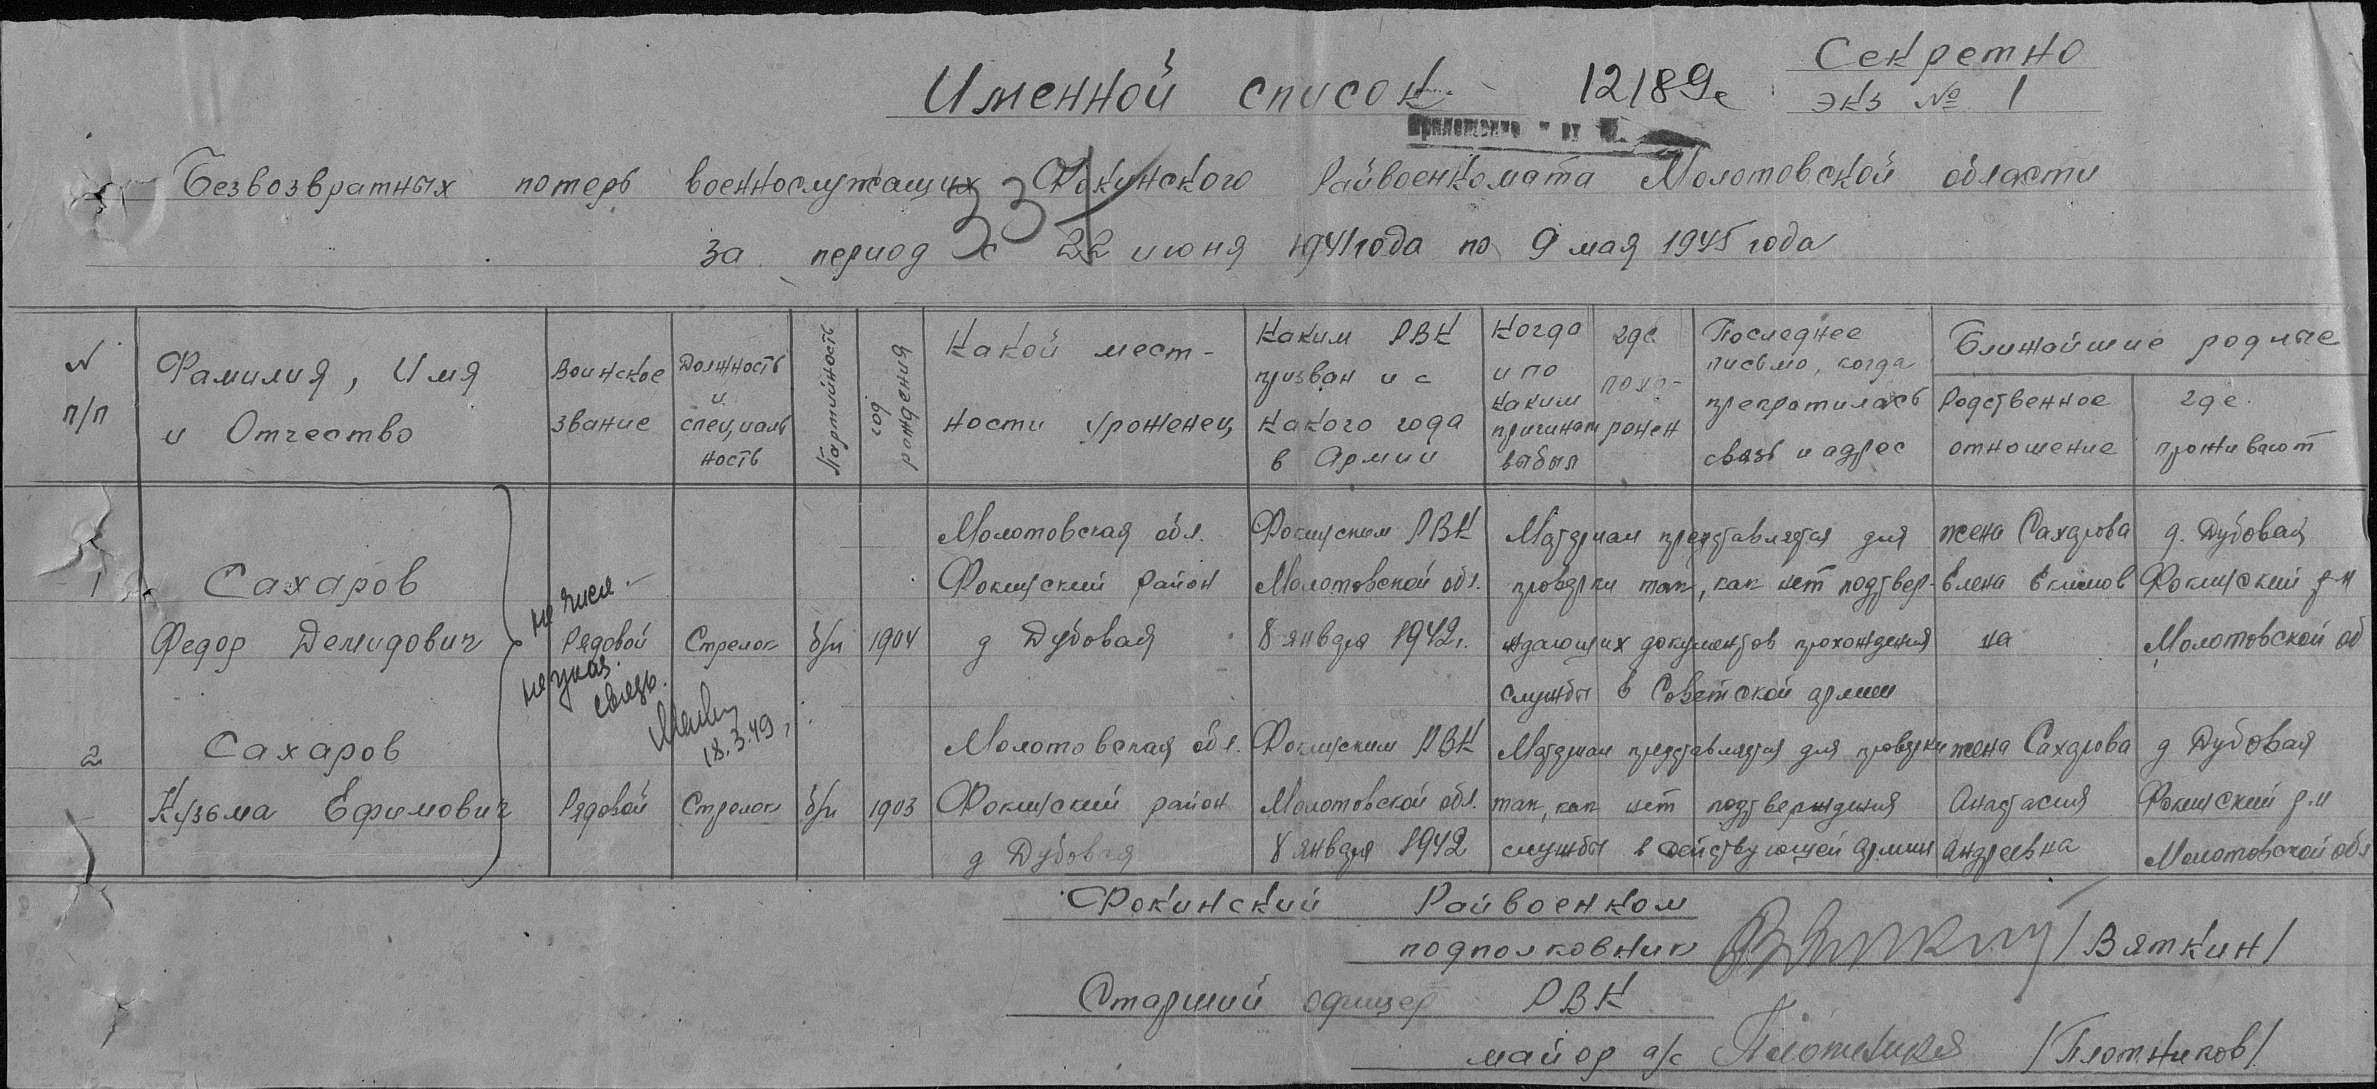 Секретно
Именной список 12189с экз № 1
Приложение к вх №
Безвозвратных потерь военнослужащих Фокинского Райвоенкомата Молотовской области
33
за период с 22 июня 1941 года по 9 мая 1945 года
N п/п
Фамилия, Имя
и Отчество
Воинское
звание
Должность
и
специаль
ность
Партийность
год
рождения
Какой мест-
ности уроженец
Каким РВК
призван и с
какого года
в Армии
Когда
и по
каким
причинам
выбыл
где
похо-
ронен
Последнее
письмо, когда
прекратилась
связь и адрес
Ближайшие родные
Родственное
отношение
где
проживают
1
Сахаров
Федор Демидович
Рядовой
Стрелок
б/п
1904
Молотовская обл.
Фокинский район
д Дубовая
Фокинским РВК
Молотовской обл.
8 января 1942г.
Материал представляется для
проверки так, как нет подтвер-
ждающих документов прохождения
службы в Советской армии
жена Сахарова
Елена Екимов
на
д. Дубовая
Фокинский р-н
Молотовской об
не числ.
не указ.
связь.
18.3.49
2
Сахаров
Кузьма Ефимович
Рядовой
Стрелок
б/п
1903
Молотовская обл.
Фокинский район
д Дубовая
Фокинским РВК
Молотовской обл.
8 января 1942
Материал представляется для проверки
так, как нет подтверждения
службы в действующей армии
жена Сахарова
Анастасия
Андреевна
д Дубовая
Фокинский р-н
Молотовской обл
Фокинский Райвоенком
подполковник /Вяткин/
Старший офицер РВК
майор а/с /Плотников/